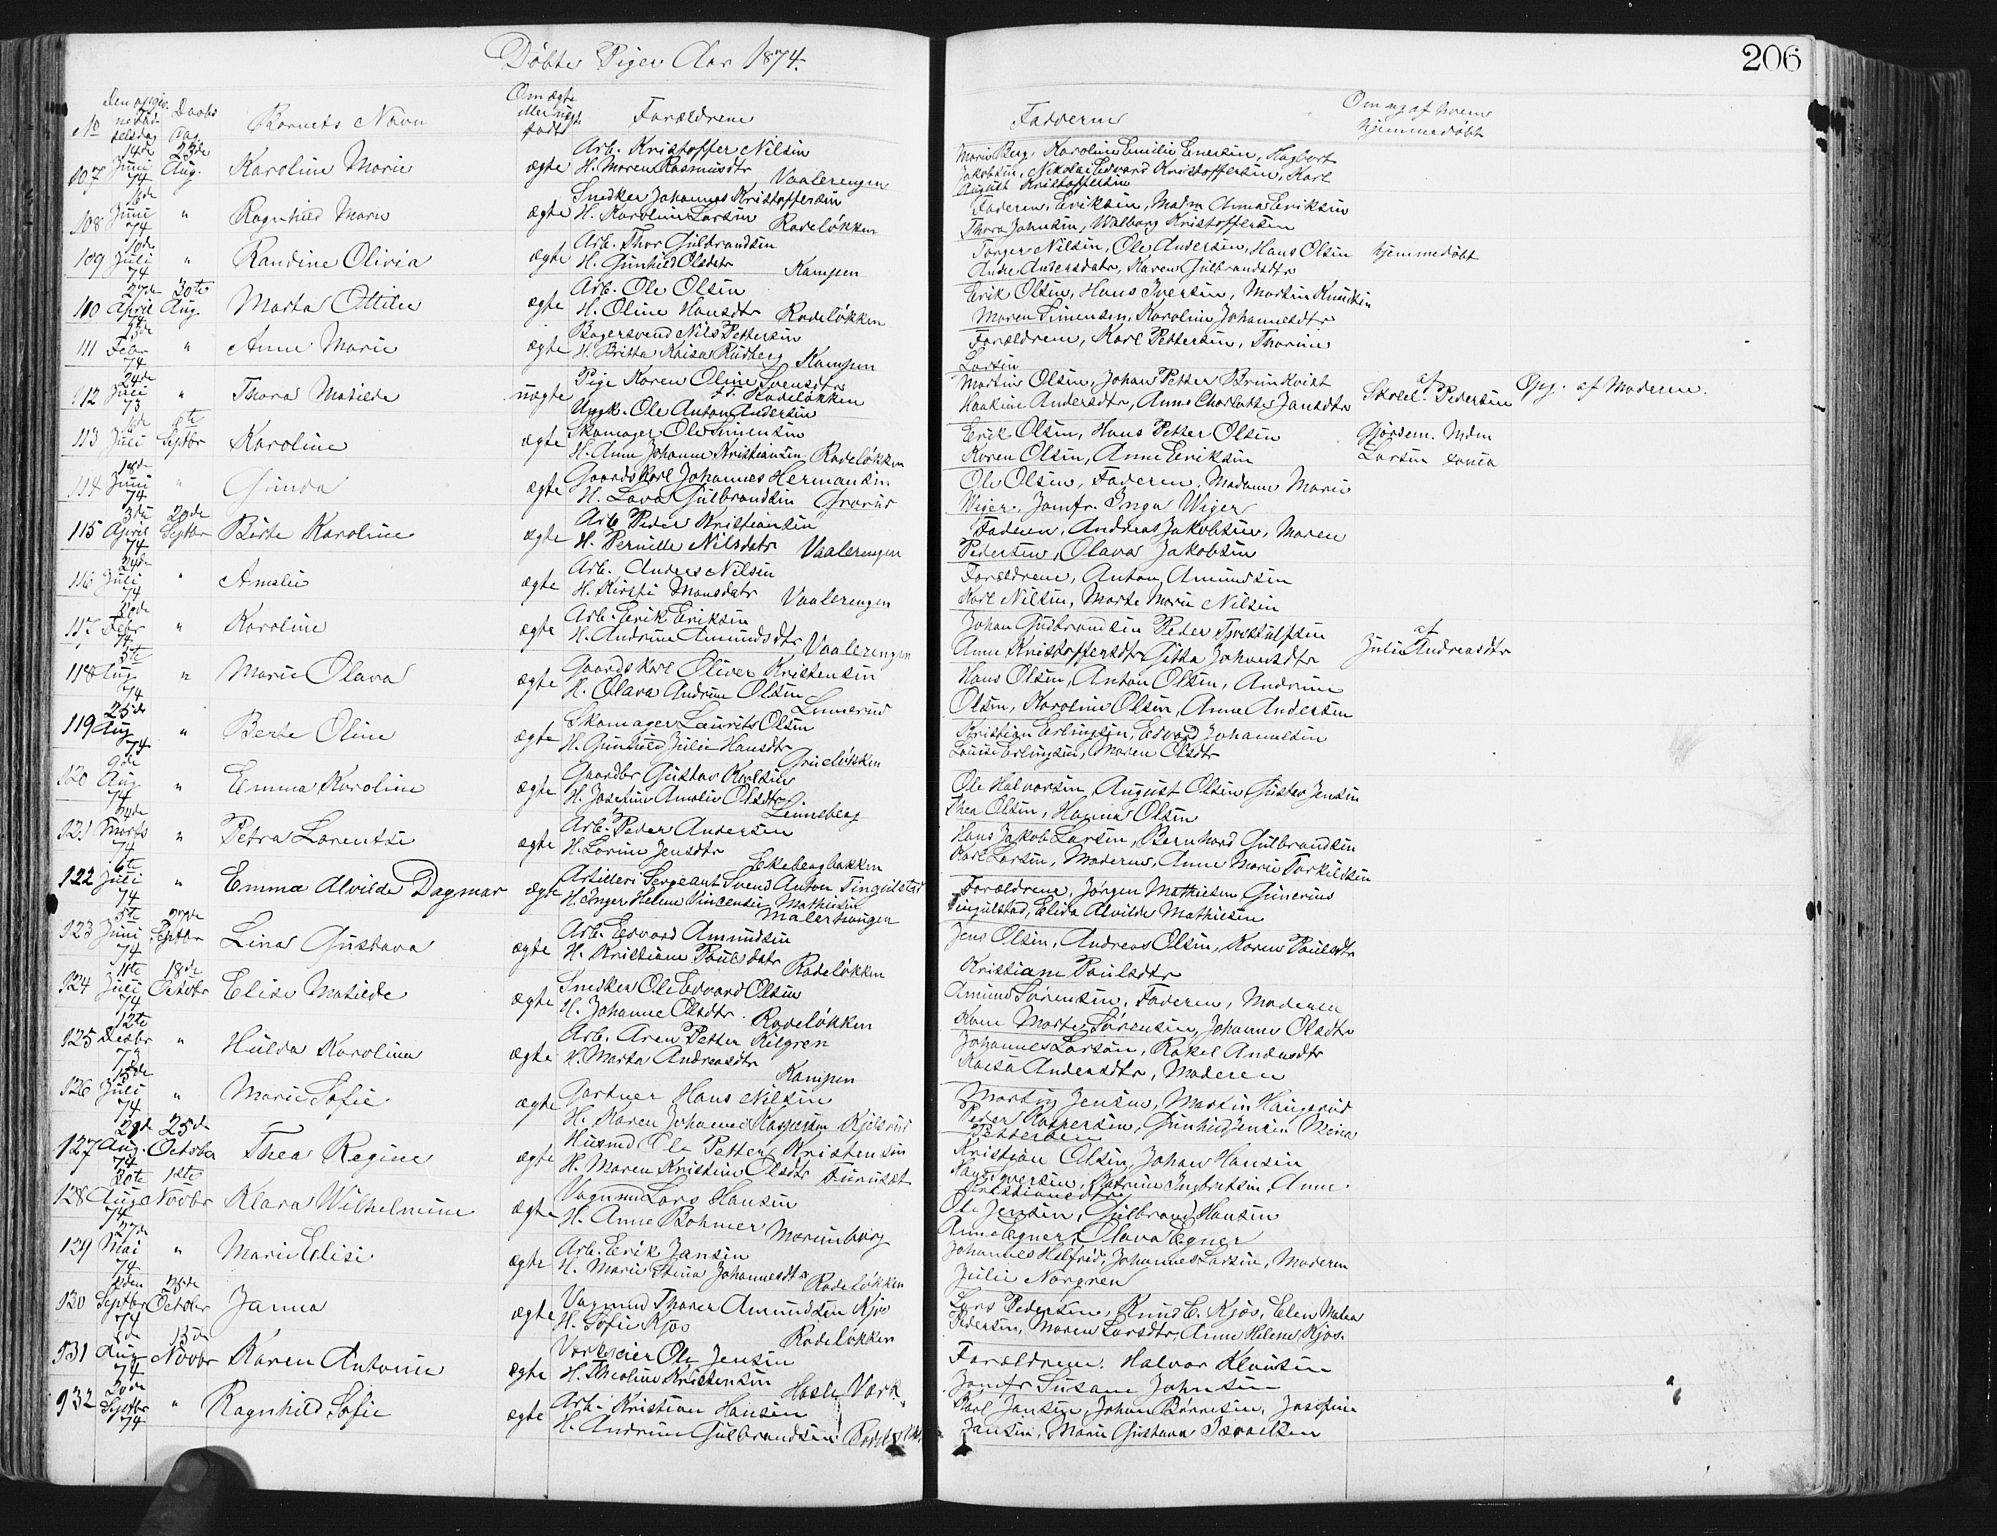 Døbte Piger Aar 1874.
206
No
Daabs
Dag
Barnets Navn
Om ægte
eller uægte
født
Forældrene
Fadderne
Om og af hvem
hjemmedøbt
107 14de Juni 74 23de Aug. Karoline Marie ægte Arb. Kristoffer Nilsen
H. Maren Rasmusdtr Vaalerengen
Marie Berg, Karoline Emilie Enersen, Hagbart
Jakobsen, Nikolai Edvard Kristoffersen, Karl
August Kristoffersen
108 Juni 74 " Ragnhild Marie ægte Snedker Johannes Kristoffersen
H. Karoline Larsen Rodeløkken
Faderen, Eriksen, Madm Anna Eriksen
Thora Johnsen, Walborg Kristoffersen
109 10de Juli 74 " Randine Olivia ægte Arb. Thor Gulbrandsen
H. Gunhild Olsdatr Kampen
Torger Nilsen, Ole Andersen, Hans Olsen hjemmedøbt
Andersdatr, Karen Gulbrandsdtr
110 27de April 74 30te Aug. Marta Ottilie ægte Arb. Ole Olsen
H. Oline Hansdtr Rodeløkken
Erik Olsen, Hans Iversen, Martin Knudsen
Maren Simensen, Karoline Johannesdtr
111 Febr 74 " Anne Marie ægte Bagersvend Nils Pettersen
H. Britta Kaisa Rudberg Kampen
Forældrene, Karl Pettersen, Thorine
Larsen
112 24de Juli 73 " Thora Matilde uægte Pige Karen Oline Svensdtr
Rodeløkken
Ungk. Ole Anton Andersen
Martin Olsen, Johan Petter Brunkvist
Haakine Andersdtr, Anne Charlotte Jansdtr
af Pedersen Opg. af Moderen.
113 Juli 6te Septbr Karoline ægte Skomager Ole Simensen
H. Anne Johanne Kristiansen Rodeløkken
Erik Olsen, Hans Petter Olsen Gjordem. Mdm
Karen Olsen, Anne Eriksen Larsen
114 Juni 74 " Gunda ægte Gaardskarl Johannes Hermansen
H. Lava Gulbrandsen Grorud
Ole Olsen, Faderen, Madame Marie
Wiger, Jomfr. Inga Wiger
115 3die April 74 20de Septbr Birte Karoline ægte Arb. Peder Kristiansen
H. Pernille Nilsdatr Vaalerengen
Faderen, Andreas Jakobsen, Maren
Pedersen, Olava Jakobsen
116 24de Juli 74 " Amalie ægte Arb. Anders Nilsen
H. Kirsti Monsdatr Vaalerengen
Forældrene, Anton Amundsen
Karl Nilsen, Marte Marie Nilsen
117 Febr 74 " Karoline ægte Arb. Erik Eriksen
H. Andrine Amundsdtr Vaalerengen
Johan Gudbrandsen Peder
Anne Kristoffersdtr, Gitta Johansdtr af Julie Andreasdtr
118 5te Aug 74 " Marie Olava ægte Gaardskarl Oliver Kristensen
H. Olava Andrine Olsen Linnerud
Hans Olsen, Anton Olsen, Andrine
Olsen, Karoline Olsen, Anne Andersen
119 25de Aug 74 " Berte Oline ægte Skomager Laurits Olsen
H. Gunhild Julie Hansdtr
Kristian Erlingsen, Edvard Johannesen
Louise Erlingsen, Maren Olsdtr
120 9de Aug 74 " Emma Karoline ægte Gaardbr Gustav Karlsen
H. Josefine Amalie Olsdtr Linneberg
Ole Halvorsen, August Olsen Gustav Jensen
Thea Olsen, Hanna Olsen
121 Marts 74 " Petra Lorentse ægte Arb. Peder Andersen
H. Lorine Jensdtr Ekebergbakken
Hans Jakob Larsen, Bernhard Gulbrandsen
Karl Larsen, Moderen, Anne Marie Torkildsen
122 6te Juli 74 " Emma Alvilde Dagmar ægte Artilleri Sergeant Svend Anton Tingulstad
H. Inger Helene Vincensie Mathiesen
Malerhaugen
Forældrene, Jørgen Mathiesen Gunerius
Tingulstad, Elida Alvilde Mathiesen
123 5te Juni 74 27de Septbr Lina Gustava ægte Arb. Edvard Amundsen
H. Kristiane Poulsdatr Rodeløkken
Jens Olsen, Andreas Olsen, Karen Poulsdtr
Kristiane Poulsdtr
124 11te Juli 74 18de Octobr Elise Matilde ægte Snedker Ole Edvard Olsen
H. Johanne Olsdtr. Rodeløkken
Amund Sørensen, Faderen, Moderen
Kone Marte Sørensen, Johanne Olsdtr
125 12te Decbr 73 " Hulda Karoline ægte Arb. Aren Petter Kilgren
H. Marta Andreasdtr Kampen
Johannes Larson, Rakel Andersdtr
Kaisa Andersdtr, Moderen
126 Juli 74 " Marie Sofie ægte Gartner Hans Nilsen
H. Karen Johanne Kaspersen Kjelsrud
Martin Jensen, Martin Haugerud
Peder Kaspersen, Gunhild Jensen Mina
Pettersen
127 21de Aug. 74 25de October Thea Regine ægte Husmd Ole Petter Kristensen
H. Maren Kristine Olsdtr Furuset
Kristian Olsen, Johan Hansen
Katrine Ingbretsen, Anne
Kristiansdtr
128 30te Aug 74 1ste Novbr Klara Wilhelmine ægte Vognmd Lars Hansen
H. Anne Bohmer Marienborg
Ole Jensen, Gulbrand Hansen
Anne Egner, Olava Egner
129 27de Mai 74 " Marie Elise ægte Arb. Erik Jansen
H. Marie Stina Johannesdtr Rodeløkken
Johannes Helfrid, Johannes Larsen, Moderen
Julie Norgren
130 Septbr 74 25de Octobr Janna ægte Vognmd Thorer Amundsen Kjos
H. Sofie Kjos Rodeløkken
Lars Pedersen, Knud E. Kjos, Elen Malea
Pedersen, Maren Larsdtr, Anne Helene Kjos.
131 Aug 74 15de Novbr Karen Antonie ægte Værkseier Ole Jensen
H. Nicoline Kristensen Hasle Værk
Forældrene, Halvor Klausen
Jomfr Susane Johnsen
132 30de Septbr 74 " Ragnhild Sofie ægte Arb. Kristian Hansen
H. Andrine Gulbrandsen
Karl Jansen, Johan Børresen, Josefine
Jansen, Marie Gustava Israelsen